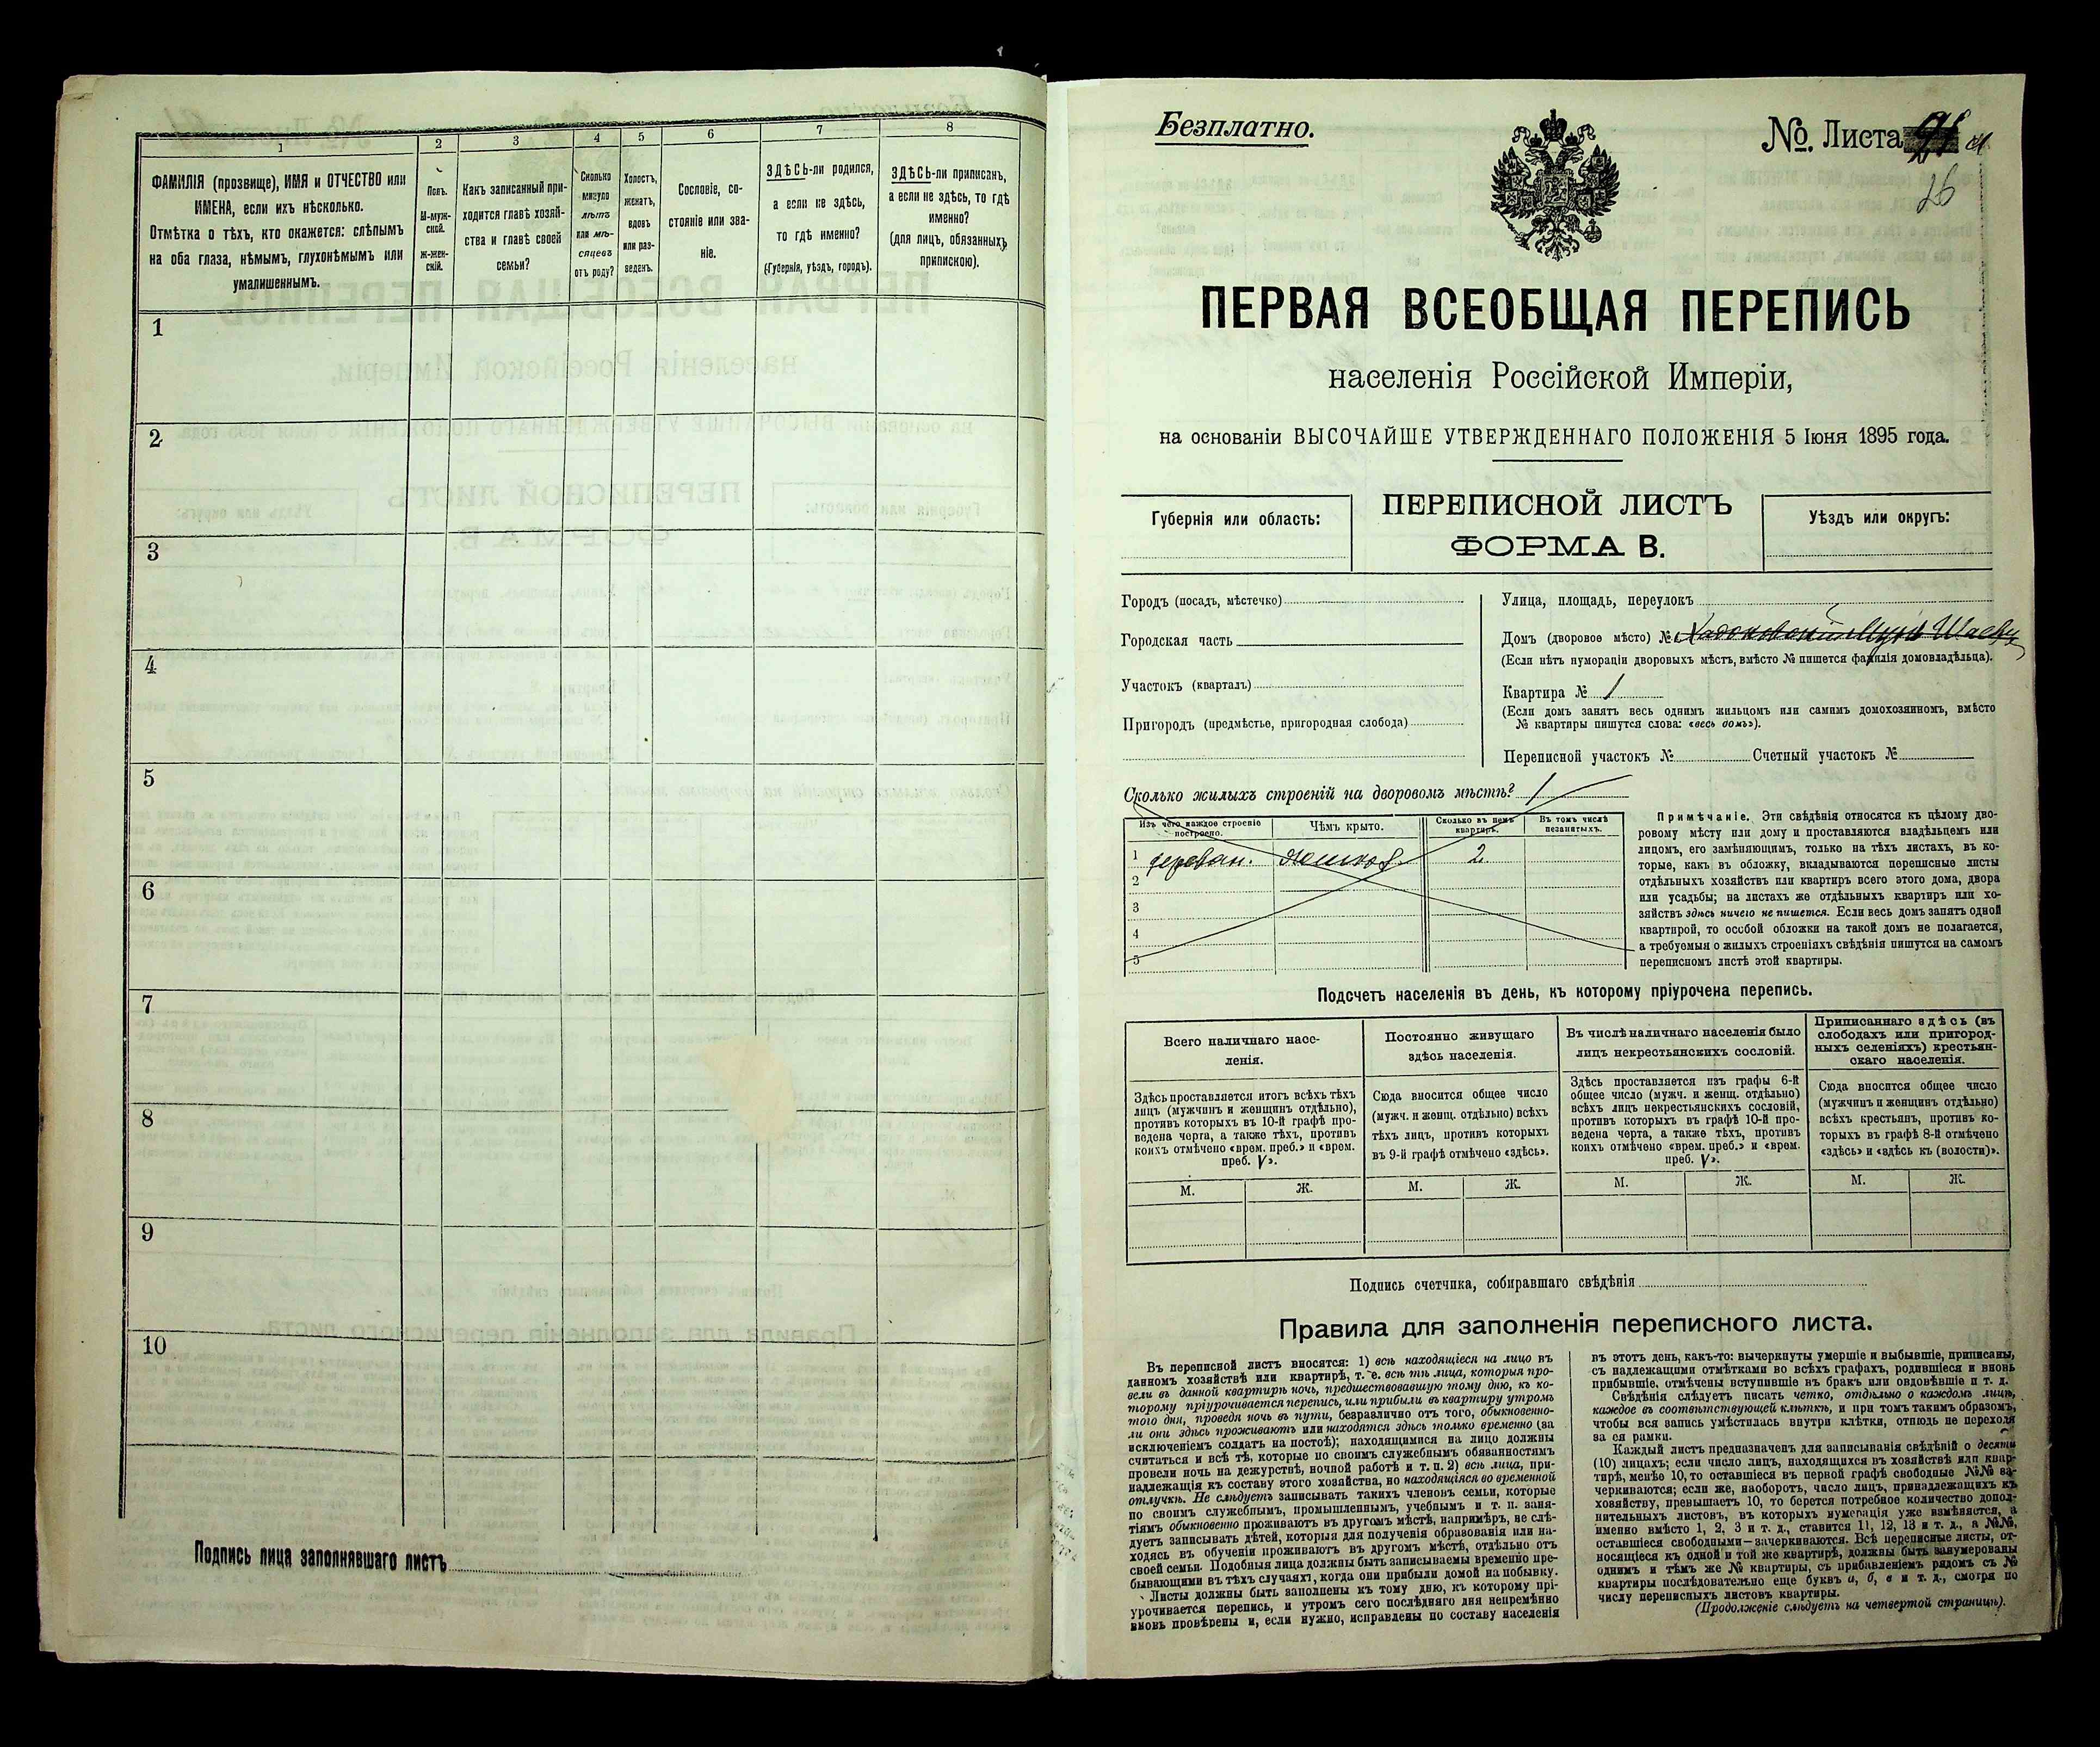 1
2
3
4
5
6
7
8
ФАМИЛІЯ (прозвище), ИМЯ и ОТЧЕСТВО или
ИМЕНА, если ихъ нѣсколько.
Отмѣтка о тѣхъ, кто окажется: слѣпымъ
на оба глаза, нѣмымъ, глухонѣмымъ или
умалишеннымъ.
Полъ.
М-муж-
ской.
Ж-жен-
скій.
Какъ записанный при-
ходится главѣ хозяй-
ства и главѣ своей
семьи?
Сколько
минуло
лѣтъ
или мѣ-
сяцевъ
отъ роду?
Холостъ,
женатъ,
вдовъ
или раз-
веденъ.
Сословіе, со-
стояніе или зва-
ніе.
ЗДѢСЬ-ли родился,
а если не здѣсь,
то гдѣ именно?
(Губернія, уѣздъ, городъ).
ЗДѢСЬ-ли приписанъ,
а если не здѣсь, то гдѣ
именно?
(для лицъ, обязанныхъ
припискою).
1
2
3
4
5
6
7
8
9
10
Подпись лица заполнявшаго листъ
Безплатно.
№ Листа
26
ПЕРВАЯ ВСЕОБЩАЯ ПЕРЕПИСЬ
населенія Россійской Имперіи,
на основаніи ВЫСОЧАЙШЕ УТВЕРЖДЕННАГО ПОЛОЖЕНІЯ 5 Іюня 1895 года.
Губернія или область:
ПЕРЕПИСНОЙ ЛИСТЪ
ФОРМА В.
Уѣздъ или округъ:
Городъ (посадъ, мѣстечко)
Городская часть
Участокъ (кварталъ)
Пригородъ (предмѣстье, пригородная слобода)
Улица, площадь, переулокъ
Домъ (дворовое мѣсто) №
(Если нѣтъ нумораціи дворовыхъ мѣстъ, вмѣсто № пишется фамилія домовладѣльца).
Квартира № 1
(Если домъ занятъ весь однимъ жильцомъ или самимъ домохозяиномъ, вмѣсто
№ квартиры пишутся слова: «весь домъ»).
Переписной участокъ № Счетный участокъ №
Сколько жилыхъ строеній на дворовомъ мѣстѣ? 1
Изъ чего каждое строеніе
построено.
Чѣмъ крыто.
Сколько въ немъ
квартиръ.
Въ томъ числѣ
незанятыхъ.
1 деревян. 2
2
3
4
5
Примѣчаніе. Эти свѣдѣнія относятся къ цѣлому дво-
ровому мѣсту или дому и проставляются владѣльцемъ или
лицомъ, его замѣняющимъ, только на тѣхъ листахъ, въ ко-
торые, какъ въ обложку, вкладываются переписные листы
отдѣльныхъ хозяйствъ или квартиръ всего этого дома, двора
или усадьбы; на листахъ же отдѣльныхъ квартиръ или хо-
зяйствъ здѣсь ничего не пишется. Если весь домъ занятъ одной
квартирой, то особой обложки на такой домъ не полагается,
а требуемыя о жилыхъ строеніяхъ свѣдѣнія пишутся на самомъ
переписномъ листѣ этой квартиры.
Подсчетъ населенія въ день, къ которому пріурочена перепись.
Всего наличнаго насе-
ленія.
Постоянно живущаго
здѣсь населенія.
Въ числѣ наличнаго населенія было
лицъ некрестьянскихъ сословій.
Приписаннаго здѣсь (въ
слободахъ или пригород-
ныхъ селеніяхъ) крестьян-
скаго населенія.
Здѣсь проставляется итогъ всѣхъ тѣхъ
лицъ (мужчинъ и женщинъ отдѣльно),
противъ которыхъ въ 10-й графѣ про-
ведена черта, а также тѣхъ, противъ
коихъ отмѣчено «врем. преб.» и «врем.
преб. V».
Сюда вносится общее число
(мужч. и женщ. отдѣльно) всѣхъ
тѣхъ лицъ, противъ которыхъ
въ 9-й графѣ отмѣчено «здѣсь».
Здѣсь проставляется изъ графы 6-й
общее число (мужч. и женщ. отдѣльно)
всѣхъ лицъ некрестьянскихъ сословій,
противъ которыхъ въ графѣ 10-й про-
ведена черта, а также тѣхъ, противъ
коихъ отмѣчено «врем. преб.» и «врем.
преб. V».
Сюда вносится общее число
(мужчинъ и женщинъ отдѣльно)
всѣхъ крестьянъ, противъ ко-
торыхъ въ графѣ 8-й отмѣчено
«здѣсь» и «здѣсь къ (волости)».
М. Ж. М. Ж. М. Ж. М. Ж.
Подпись счетчика, собиравшаго свѣдѣнія
Правила для заполненія переписного листа.
Въ переписной листъ вносятся: 1) всѣ находящіеся на лицо въ
данномъ хозяйствѣ или квартирѣ, т. е. всѣ тѣ лица, которыя про-
вели въ данной квартирѣ ночь, предшествовавшую тому дню, къ ко-
торому пріурочивается перепись, или прибыли въ квартиру утромъ
того дня, проведя ночь въ пути, безразлично отъ того, обыкновенно-
ли они здѣсь проживаютъ или находятся здѣсь только временно (за
исключеніемъ солдатъ на постоѣ); находящимися на лицо должны
считаться и всѣ тѣ, которые по своимъ служебнымъ обязанностямъ
провели ночь на дежурствѣ, ночной работѣ и т. п. 2) всѣ лица, при-
надлежащія къ составу этого хозяйства, но находящіяся во временной
отлучкѣ. Не слѣдуетъ записывать такихъ членовъ семьи, которые
по своимъ служебнымъ, промышленнымъ, учебнымъ и т. п. заня-
тіямъ обыкновенно проживаютъ въ другомъ мѣстѣ, напримѣръ, не слѣ-
дуетъ записывать дѣтей, которыя для полученія образованія или на-
ходясь въ обученіи проживаютъ въ другомъ мѣстѣ, отдѣльно отъ
своей семьи. Подобныя лица должны быть записываемы временно пре-
бывающими въ тѣхъ случаяхъ, когда они прибыли домой на побывку.
Листы должны быть заполнены къ тому дню, къ которому прі-
урочивается перепись, и утромъ сего послѣдняго дня непремѣнно
вновь провѣрены и, если нужно, исправлены по составу населенія
въ этотъ день, какъ-то: вычеркнуты умершіе и выбывшіе, приписаны,
съ надлежащими отмѣтками во всѣхъ графахъ, родившіеся и вновь
прибывшіе, отмѣчены вступившіе въ бракъ или овдовѣвшіе и т. д.
Свѣдѣнія слѣдуетъ писать четко, отдѣльно о каждомъ лицѣ,
каждое въ соотвѣтствующей клѣткѣ, и при томъ такимъ образомъ,
чтобы вся запись умѣстилась внутри клѣтки, отнюдь не переходя
за ея рамки.
Каждый листъ предназначенъ для записыванія свѣдѣній о десяти
(10) лицахъ; если число лицъ, находящихся въ хозяйствѣ или квар-
тирѣ, менѣе 10, то оставшіеся въ первой графѣ свободные №№ за-
черкиваются; если же, наоборотъ, число лицъ, принадлежащихъ къ
хозяйству, превышаетъ 10, то берется потребное количество допол-
нительныхъ листовъ, въ которыхъ нумерація уже измѣняется, а
именно вмѣсто 1, 2, 3 и т. д., ставится 11, 12, 13 и т. д., а №№,
оставшіеся свободными—зачеркиваются. Всѣ переписные листы, от-
носящіеся къ одной и той же квартирѣ, должны быть занумерованы
однимъ и тѣмъ же № квартиры, съ прибавленіемъ рядомъ съ №
квартиры послѣдовательно еще буквъ а, б, в и т. д., смотря по
числу переписныхъ листовъ квартиры.
(Продолженіе слѣдуетъ на четвертой страницѣ).